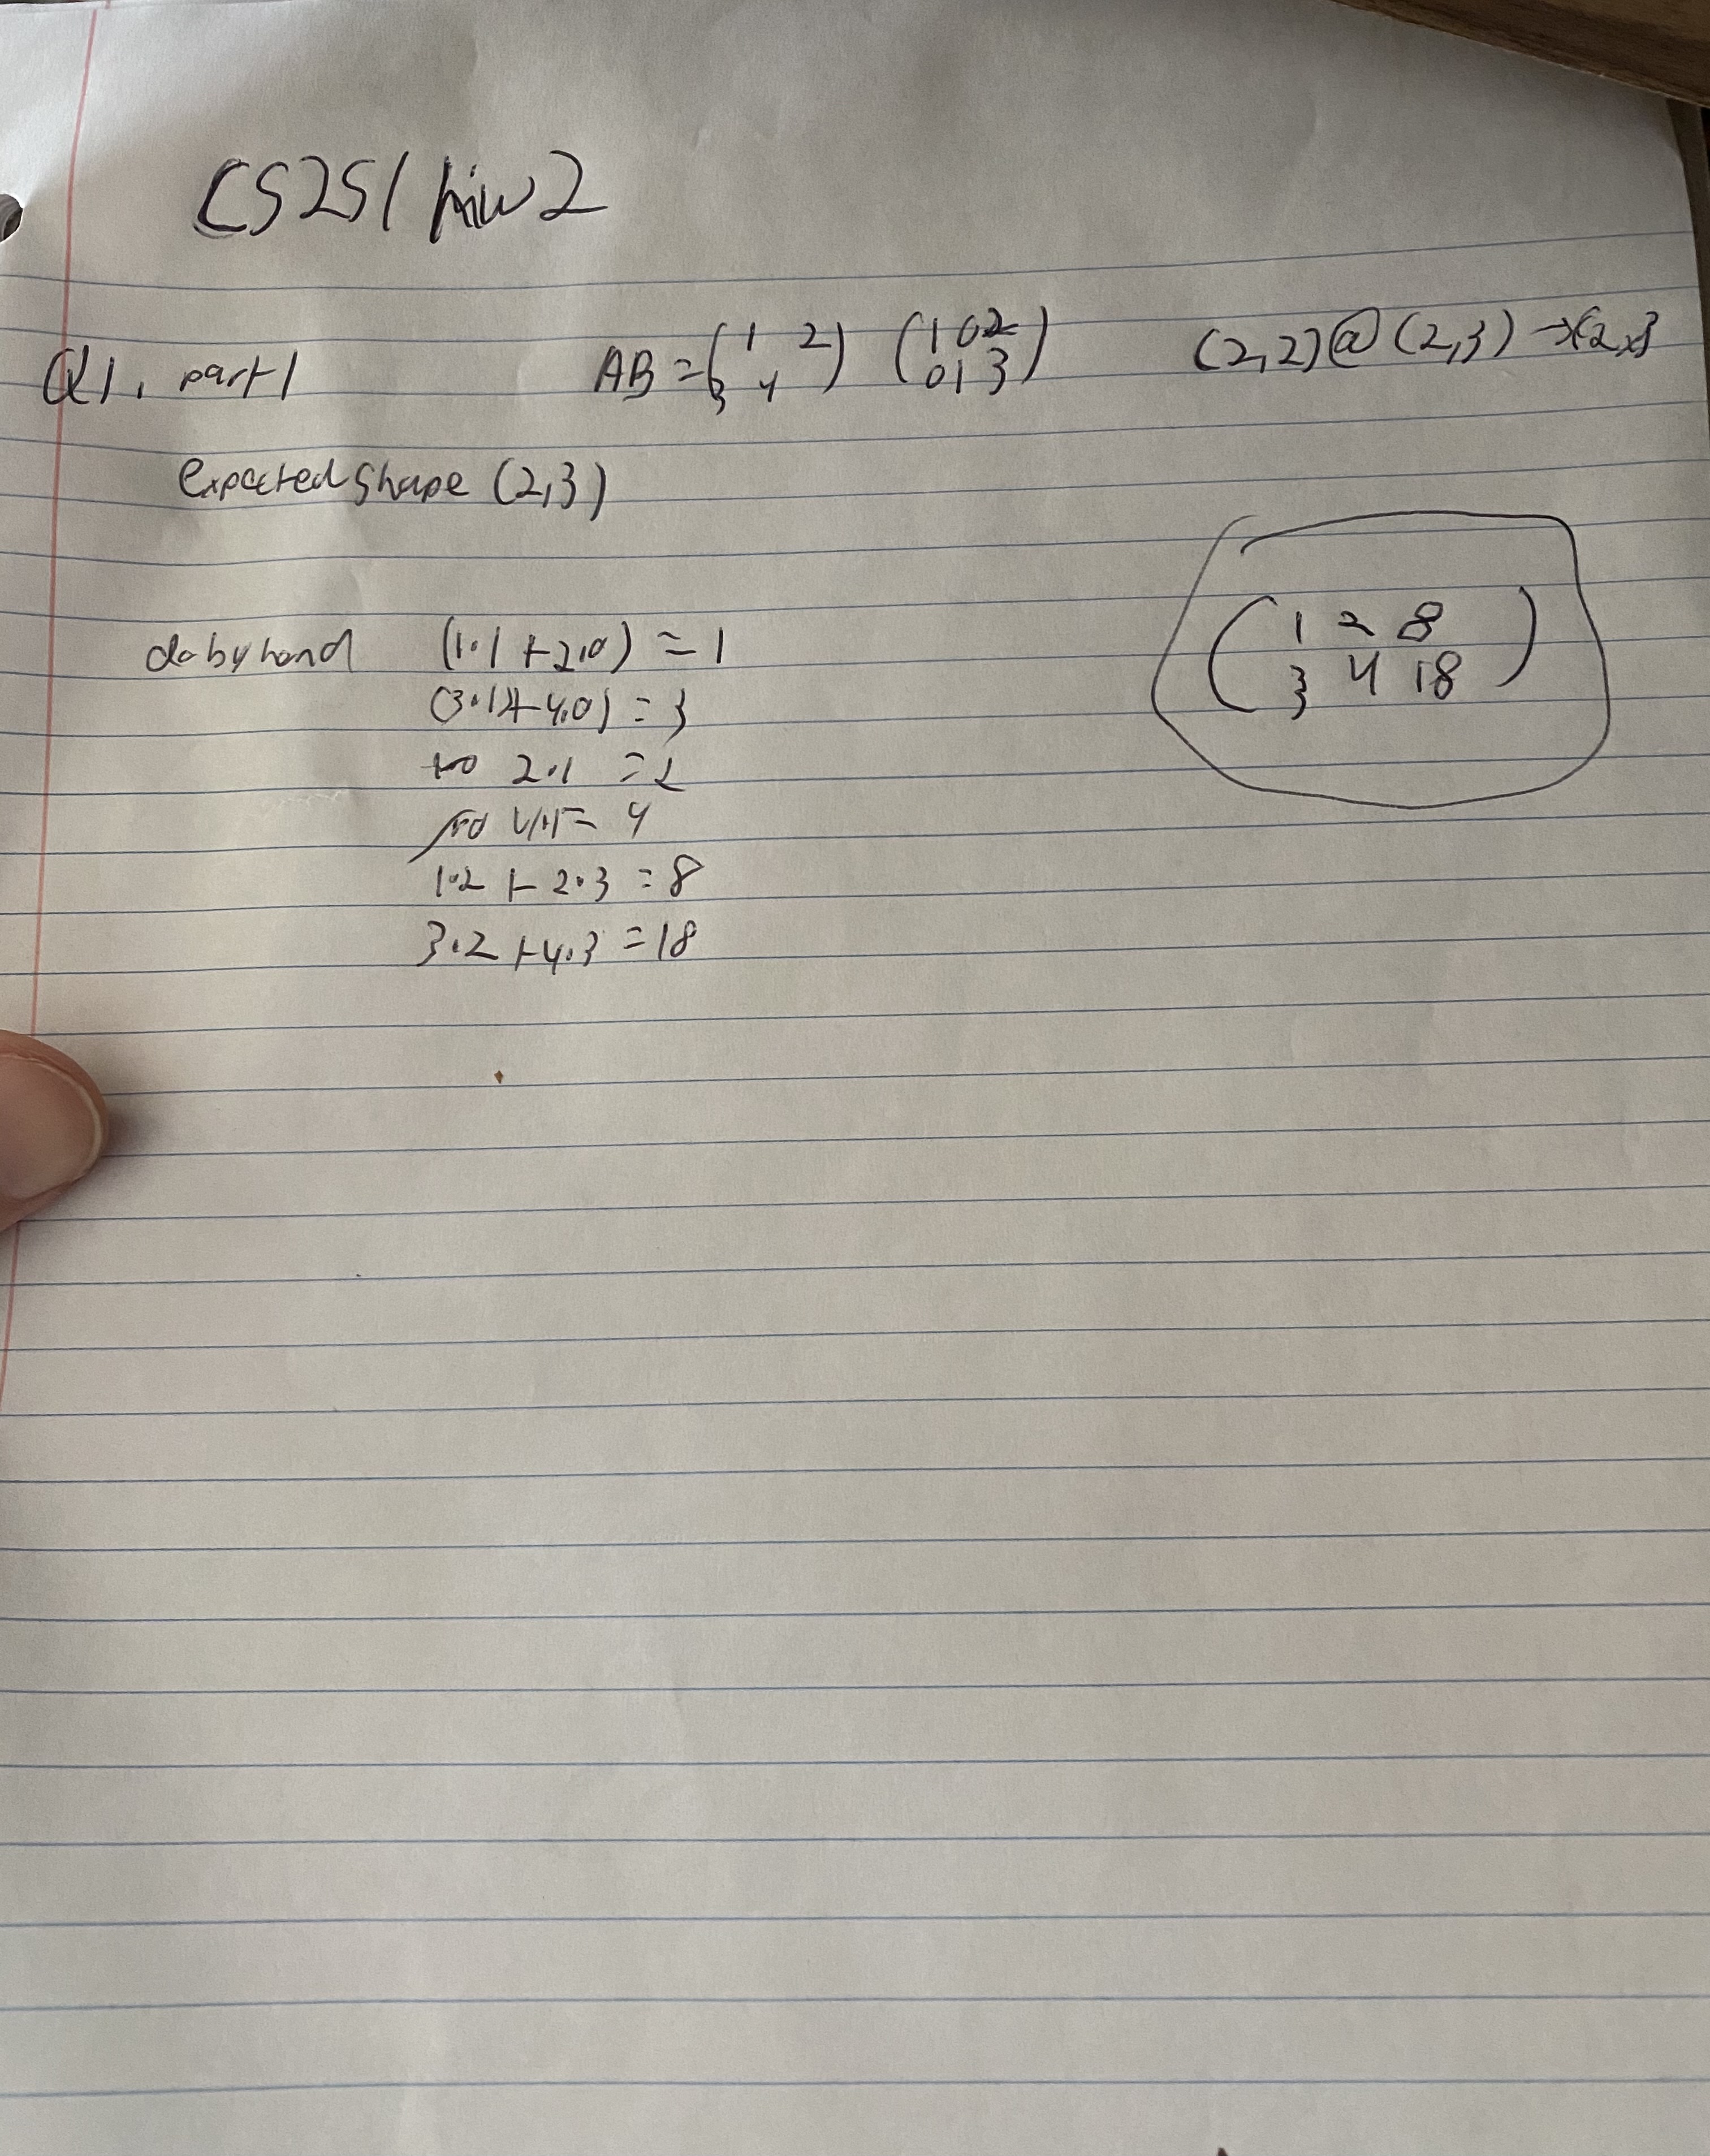 CS251 hw2
Q1. part 1 AB = (1 2) (1 0 2) (2,2)@(2,3) → (2x3
3 4 0 1 3
expected shape (2,3)
do by hand (1·1 + 2·0) = 1
(3·1)+4·0) = 3
2·1 = 2
= 4
1·2 + 2·3 = 8
3·2 + 4·3 = 18
(1 2 8
3 4 18)